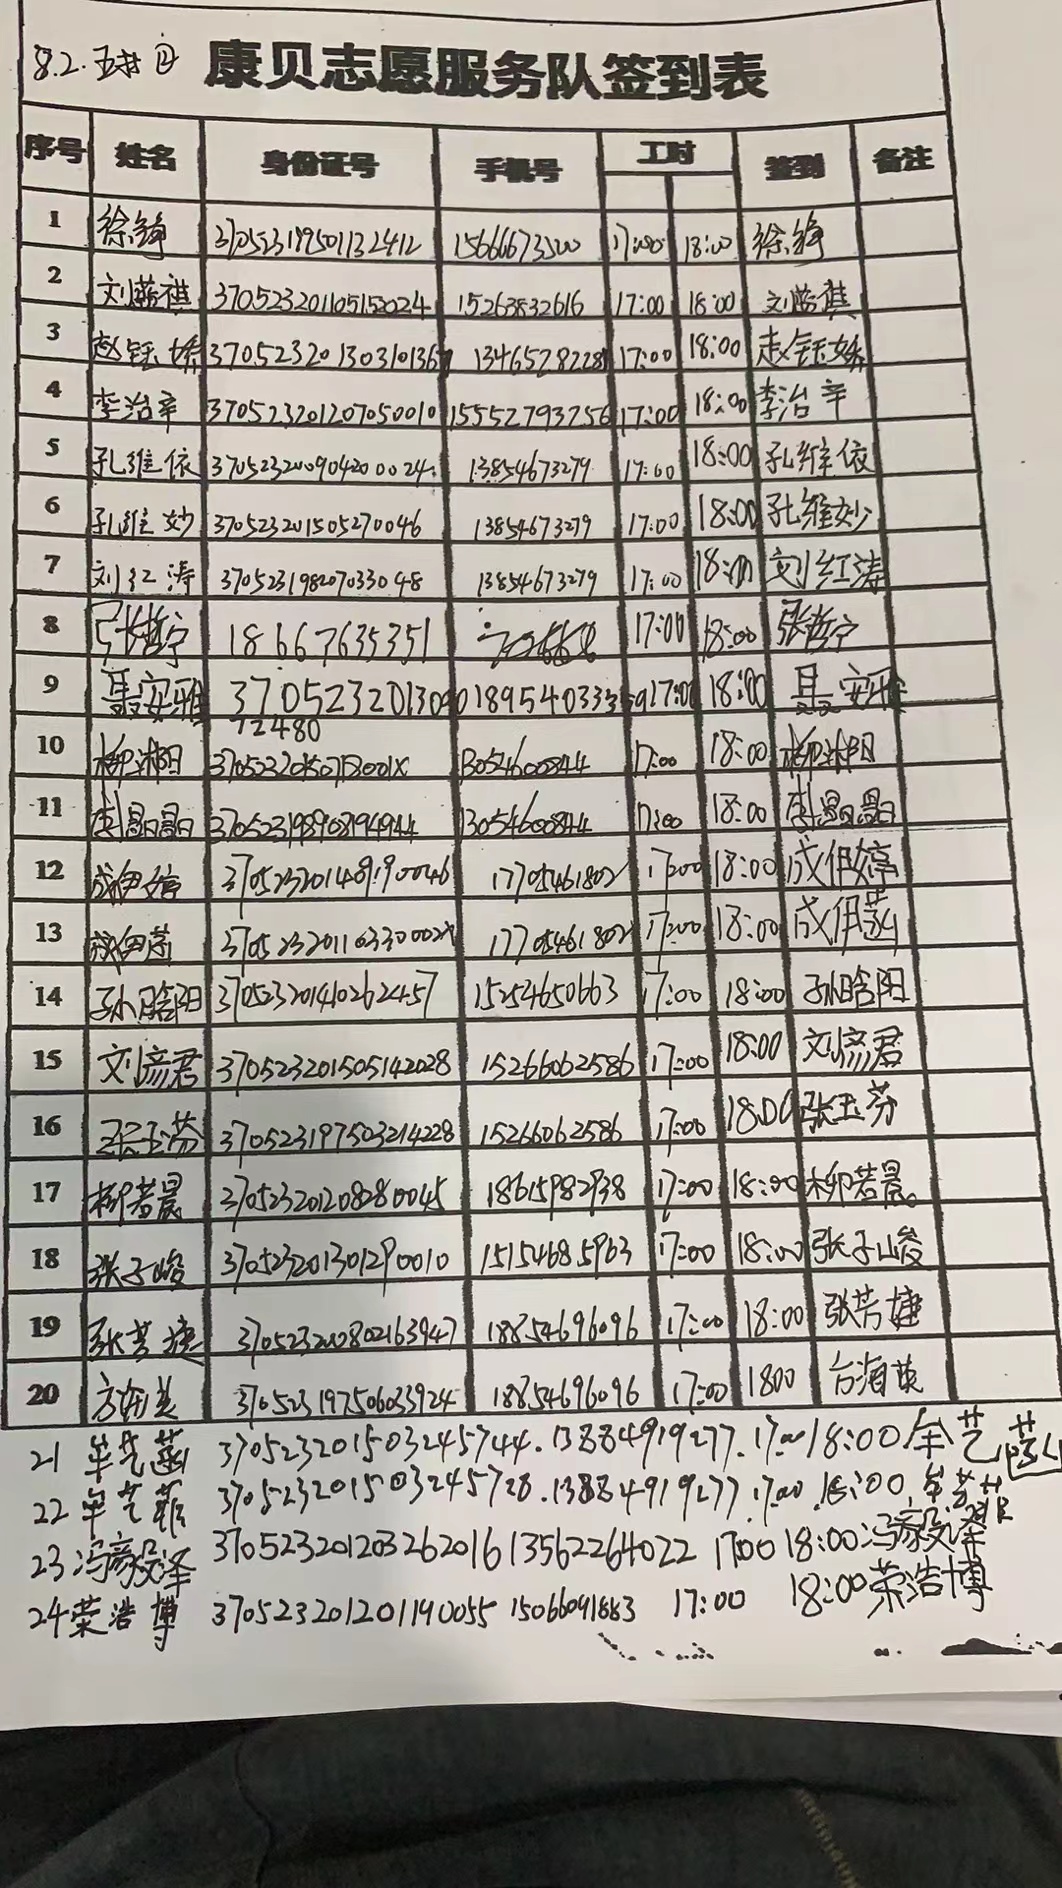 8.2. 康贝志愿服务队签到表
序号 姓名 身份证号 手机号 工时 签到 备注
1 徐铮 370523199501132412 15666673500 17:00 18:00 徐铮
2 刘懿祺 370523201105152024 15263832616 17:00 18:00 刘懿祺
3 赵钰娇 37052320130310136 13465282281 17:00 18:00 赵钰娇
4 李治辛 370523201207050010 15552793256 17:00 18:00 李治辛
5 孔维依 370523200904200024 13854673279 17:00 18:00 孔维依
6 孔维妙 370523201505270046 13854673279 17:00 18:00 孔维妙
7 刘红涛 370523198207033048 13854673279 17:00 18:00 刘红涛
8 张哲宁 18667635351 17:00 18:00 张哲宁
9 聂安雅 3705232013090 18954033359 17:00 18:00 聂安雅
72480
10 柳沐阳 13054600844 17:00 18:00 柳沐阳
11 李晶晶 370523198908194944 13054600844 17:00 18:00 李晶晶
12 成伊婷 17705461802 17:00 18:00 成伊婷
13 成伊菡 17705461802 17:00 18:00 成伊菡
14 孙晗阳 370523201410262457 15254650663 17:00 18:00 孙晗阳
15 刘彦君 370523201505142028 15266062586 17:00 18:00 刘彦君
16 张玉芬 370523197503214228 15266062586 17:00 18:00 张玉芬
17 柳若晨 370523201208280045 18615982938 17:00 18:00 柳若晨
18 张子峻 370523201301290010 15154685963 17:00 18:00 张子峻
19 张芳婕 18854696096 17:00 18:00 张芳婕
20 370523197506033924 18854696096 17:00 1800
21 牟艺菡 370523201503245744. 13884919277. 17:00 18:00 牟艺菡
22 牟艺菲 370523201503245728. 13884919277 17:00 18:00 牟艺菲
23 冯豪毅泽 370523201203262016 13562264022 17:00 18:00 冯豪毅泽
24 荣浩博 370523201201190055 15066091883 17:00 18:00 荣浩博